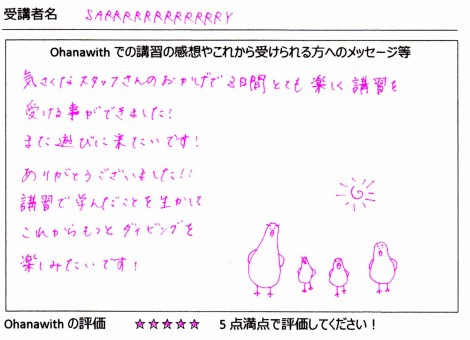 受講者名 SARRRRRRRRRRRRY
Ohanawith での講習の感想やこれから受けられる方へのメッセージ等
気さくなスタッフさんのおかげで3日間とても楽しく講習を
受ける事ができました!
また遊びに来たいです!
ありがとうございました!!
講習で学んだことを生かして
これからもっとダイビングを
楽しみたいです!
Ohanawith の評価 ☆☆☆☆☆ 5点満点で評価してください!